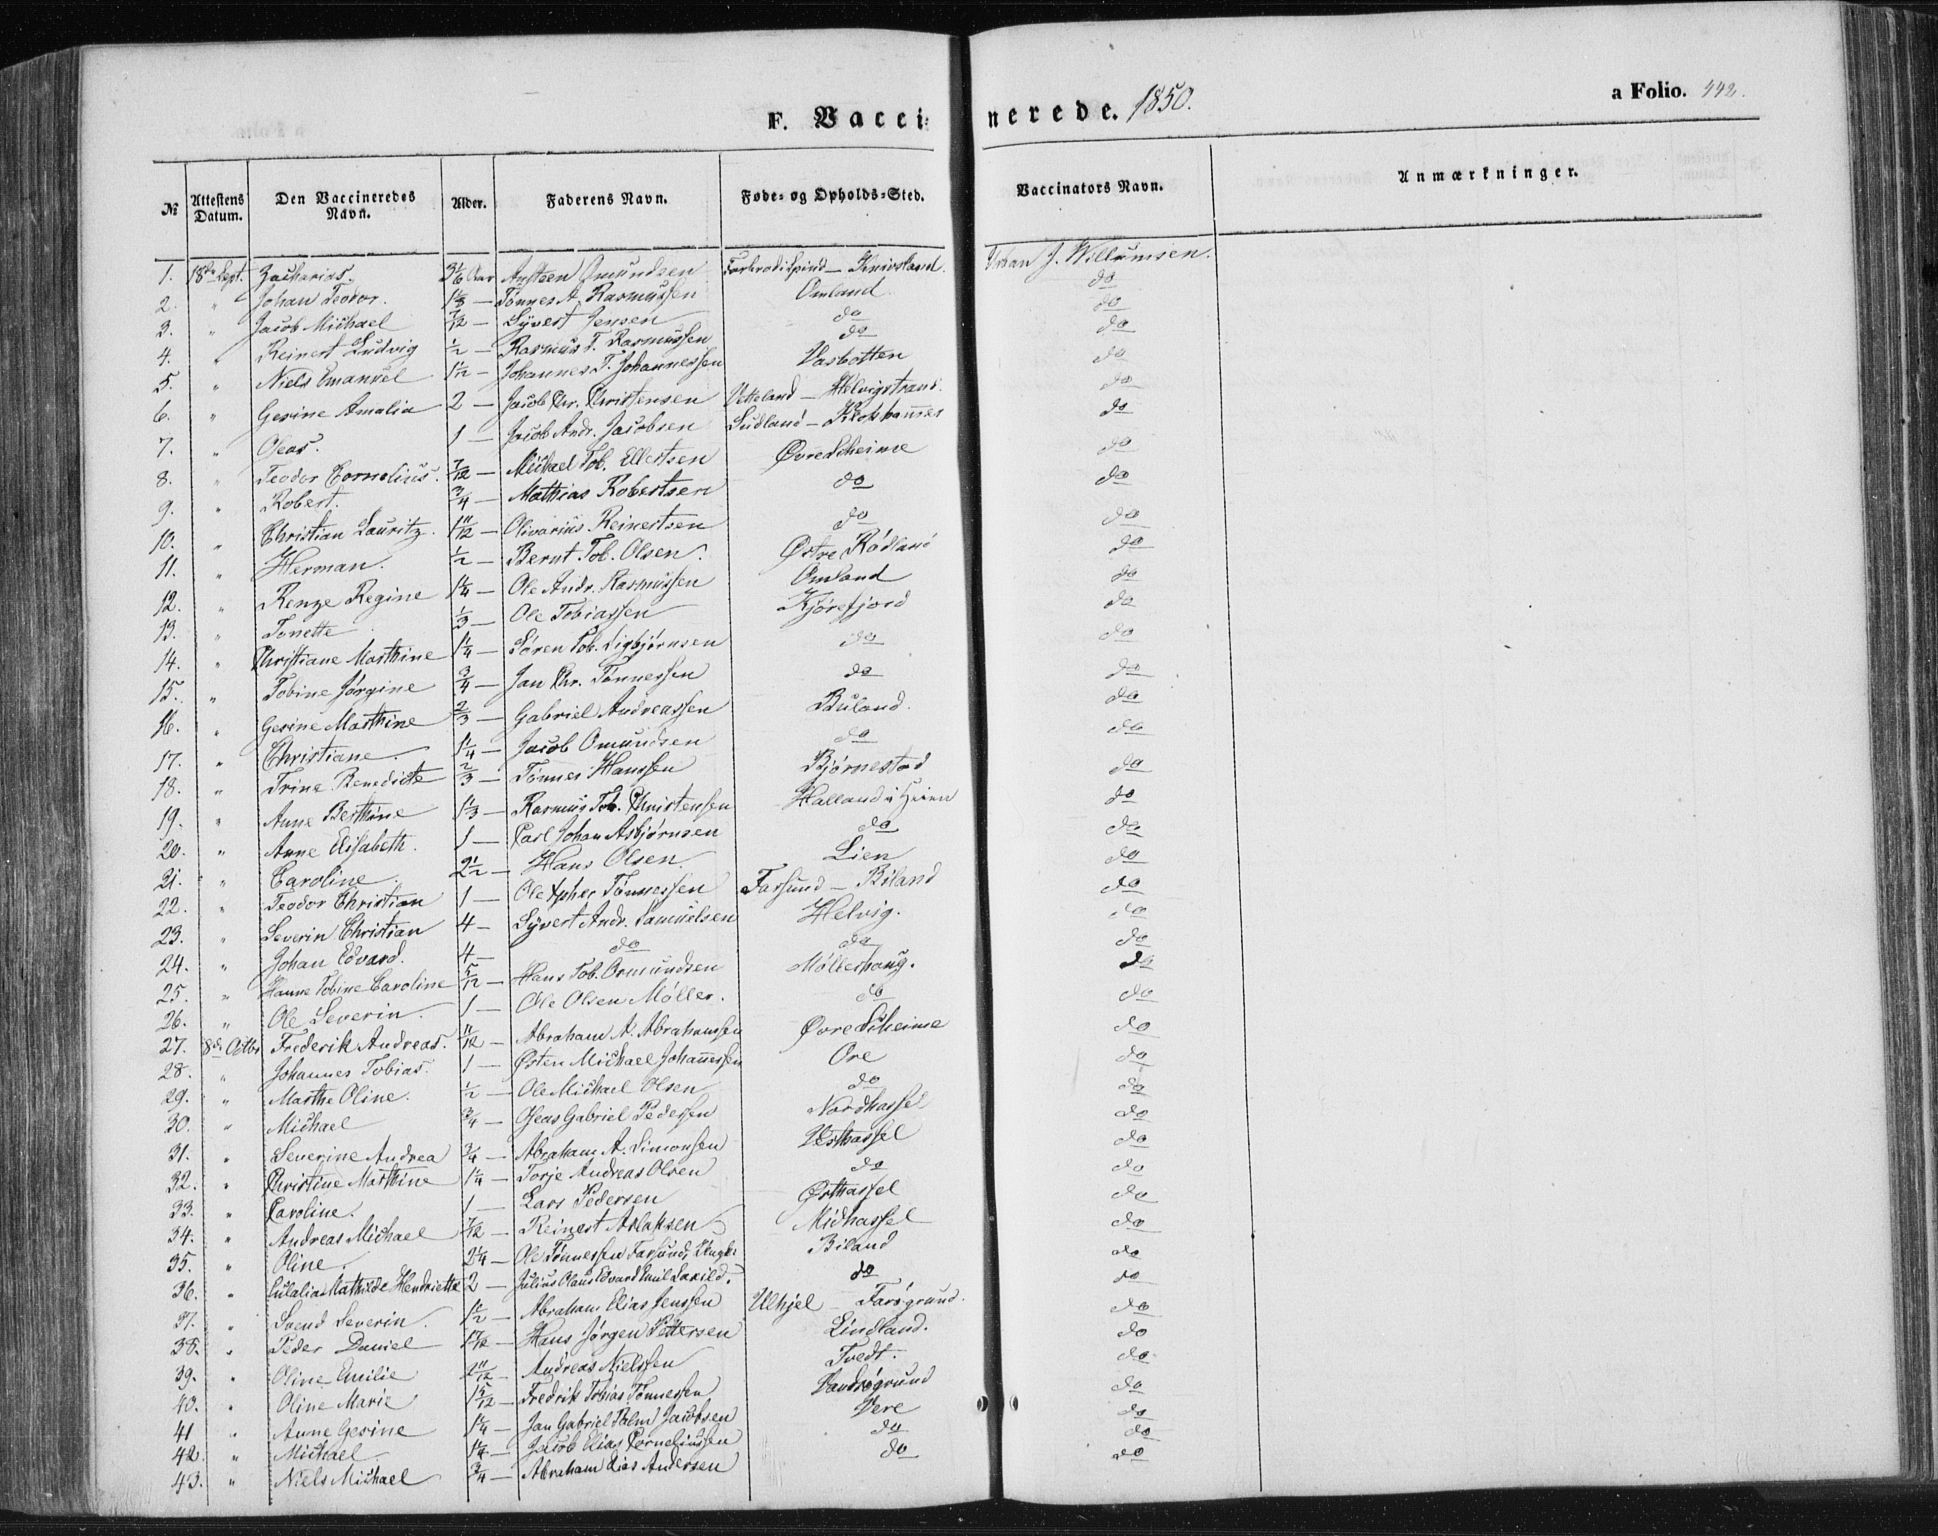 F. Vaccinerede. 1850. a Folio. 442.
№ Attestens Datum. Den Vaccineredes Navn. Alder. Faderens Navn. Føde- og Opholds-Sted. Vaccinators Navn. Anmærkninger.
1. 18de Sept. Zacharias. 3 1/6 Aar Austeen Omundsen Farbrodi Spind — Knivsland. J. Willumsen.
2. " Johan Teodor. 1 1/3 — Tönnes A. Rasmussen Omland. do
3. " Jacob Michael 7/12 — Syvert Jensen do do
4. " Reinert Ludvig 1/2 — Rasmus T. Rasmussen do do
5. " Niels Emanuel 1 1/2 — Johannes T. Johannessen Vasbotten do
6. " Gesine Amalia 2 — Jacob Chr. Christensen Vetteland — Helvigstrand. do
7. " Oleas. 1 — Jacob Andr. Jacobsen Sudland — do
8. " Teodor Cornelius. 7/12 — Michael Tob. Ellertsen Øvre Skeime do
9. " Robert. 3/4 — Mathias Robertsen do do
10. " Christian Lauritz. 1 11/12 — Olivarius Reinertsen do do
11. " Herman. 1/2 — Bernt Tob. Olsen. Østre Rødland do
12. " Renze Regine 1 1/4 — Ole Andr. Rasmussen Omland do
13. " Tonette 1/3 — Ole Tobiassen Kjørefjord do
14. " Christiane Marthine 1 1/4 — Sören Tob. Sigbjørnsen do do
15. " Tobine Jörgine 3/4 — Jan Chr. Tönnessen do do
16. " Gesine Marthine 2/3 — Gabriel Andreassen Buland. do
17. " Christiane. 1 1/4 — Jacob Omundsen do do
18. " Trine Benedicte 2/3 — Tönnes Hanssen Bjørnestad do
19. " Anne Berthine 1 1/3 — Rasmus Tob. Christensen Halland i Heien do
20. " Anne Elisabeth. 1 — Carl Johan Asbjørnsen do do
21. " Caroline. 2 1/2 — Hans Olsen Lien do
22. " Teodor Christian 1 — Ole Xpher Tönnessen Farsund — Biland do
23. " Severin Christian 4 — Syvert Andr. Samuelsen Helvig. do
24. " Johan Edvard. 4 — do do do
25. " Hanne Tobine Caroline 5/12 — Hans Tob. Omundsen Møllerhaug. do
26. " Ole Severin. 1 — Ole Olsen Møller. do do
27. 8de Octbr Frederik Andreas. 11/12 — Abraham A. Abrahamsen Øvre Skeime do
28. " Johannes Tobias. 1 — Østen Michael Johannessen Ore do
29. " Marthe Oline. 1/2 — Ole Michael Olsen do do
30. " Michael 3/4 — Oleas Gabriel Pedersen Nordhassel do
31. " Severine Andrea 3/4 — Abraham A. Simonsen Vesthassel do
32. " Christine Marthine 1 1/4 — Torje Andreas Olsen do do
33. " Caroline. 1 — Lars Pedersen Østhassel do
34. " Andreas Michael 7/12 — Reinert Aslaksen Midhassel do
35. " Oline. 2 1/4 — Ole Tönnessen Farsund, Biland do
36. " Eulalia Mathilde Henriette 2 — Julius Olaus Edvard Emil do do
37. " Svend Severin. 1/2 — Abraham Elias Jenssen Ulhjel — Farøgrund. do
38. " Peder Daniel — Hans Jörgen Pettersen Lindland. do
39. " Oline Emilie 2 11/12 — Andreas Nielssen Tvedt. do
40. " Oline Marie 1 5/12 — Fredrik Tobias Tönnessen Vandsøgrund do
41 " Anne Gesine 1 1/4 — Jan Gabriel Jacobsen Vere do
42. " Michael. 1 1/4 — Jacob Elias Corneliussen do do
43. " Niels Michael 3/4 — Abraham Elias Andersen do do